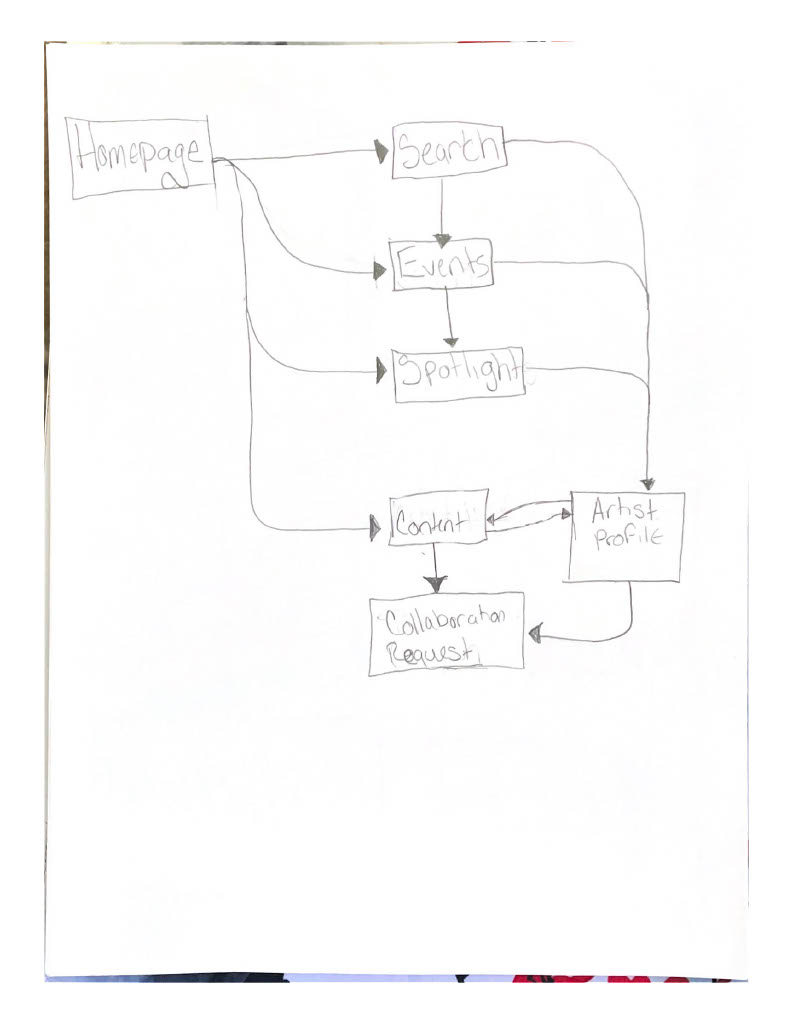 Homepage
Search
Events
Spotlights
Content
Artist
Profile
Collaboration
Request